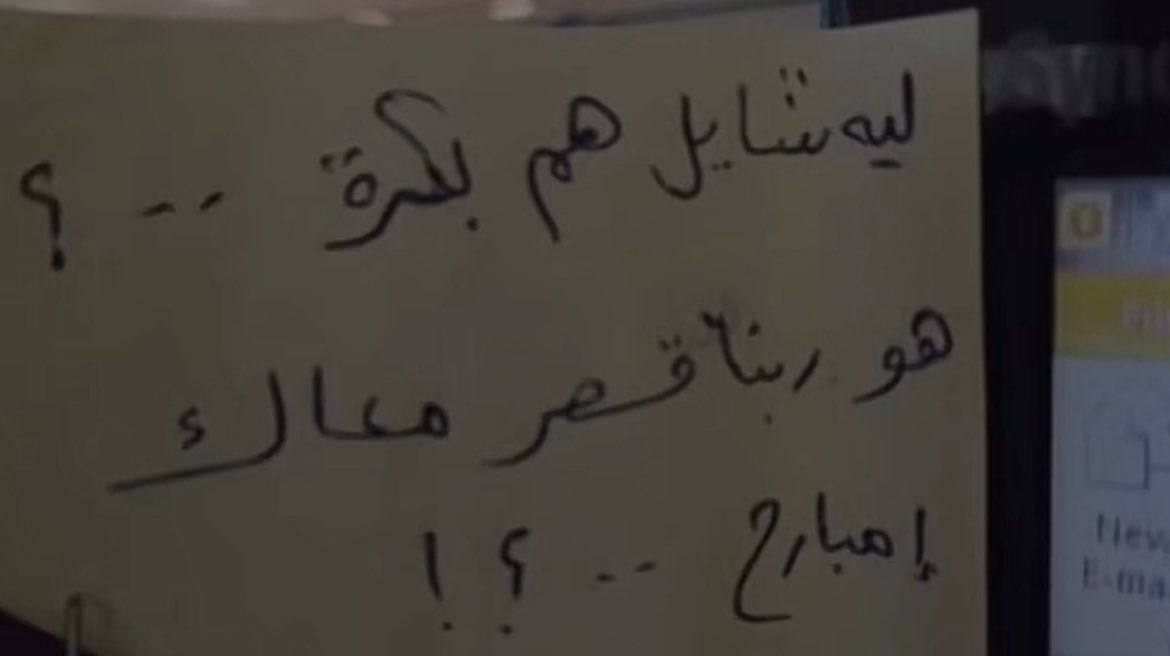 ليه شايل هم بكرة .. ؟
هو ربنا قصر معاك
إمبارح .. ؟ !
New
E-ma